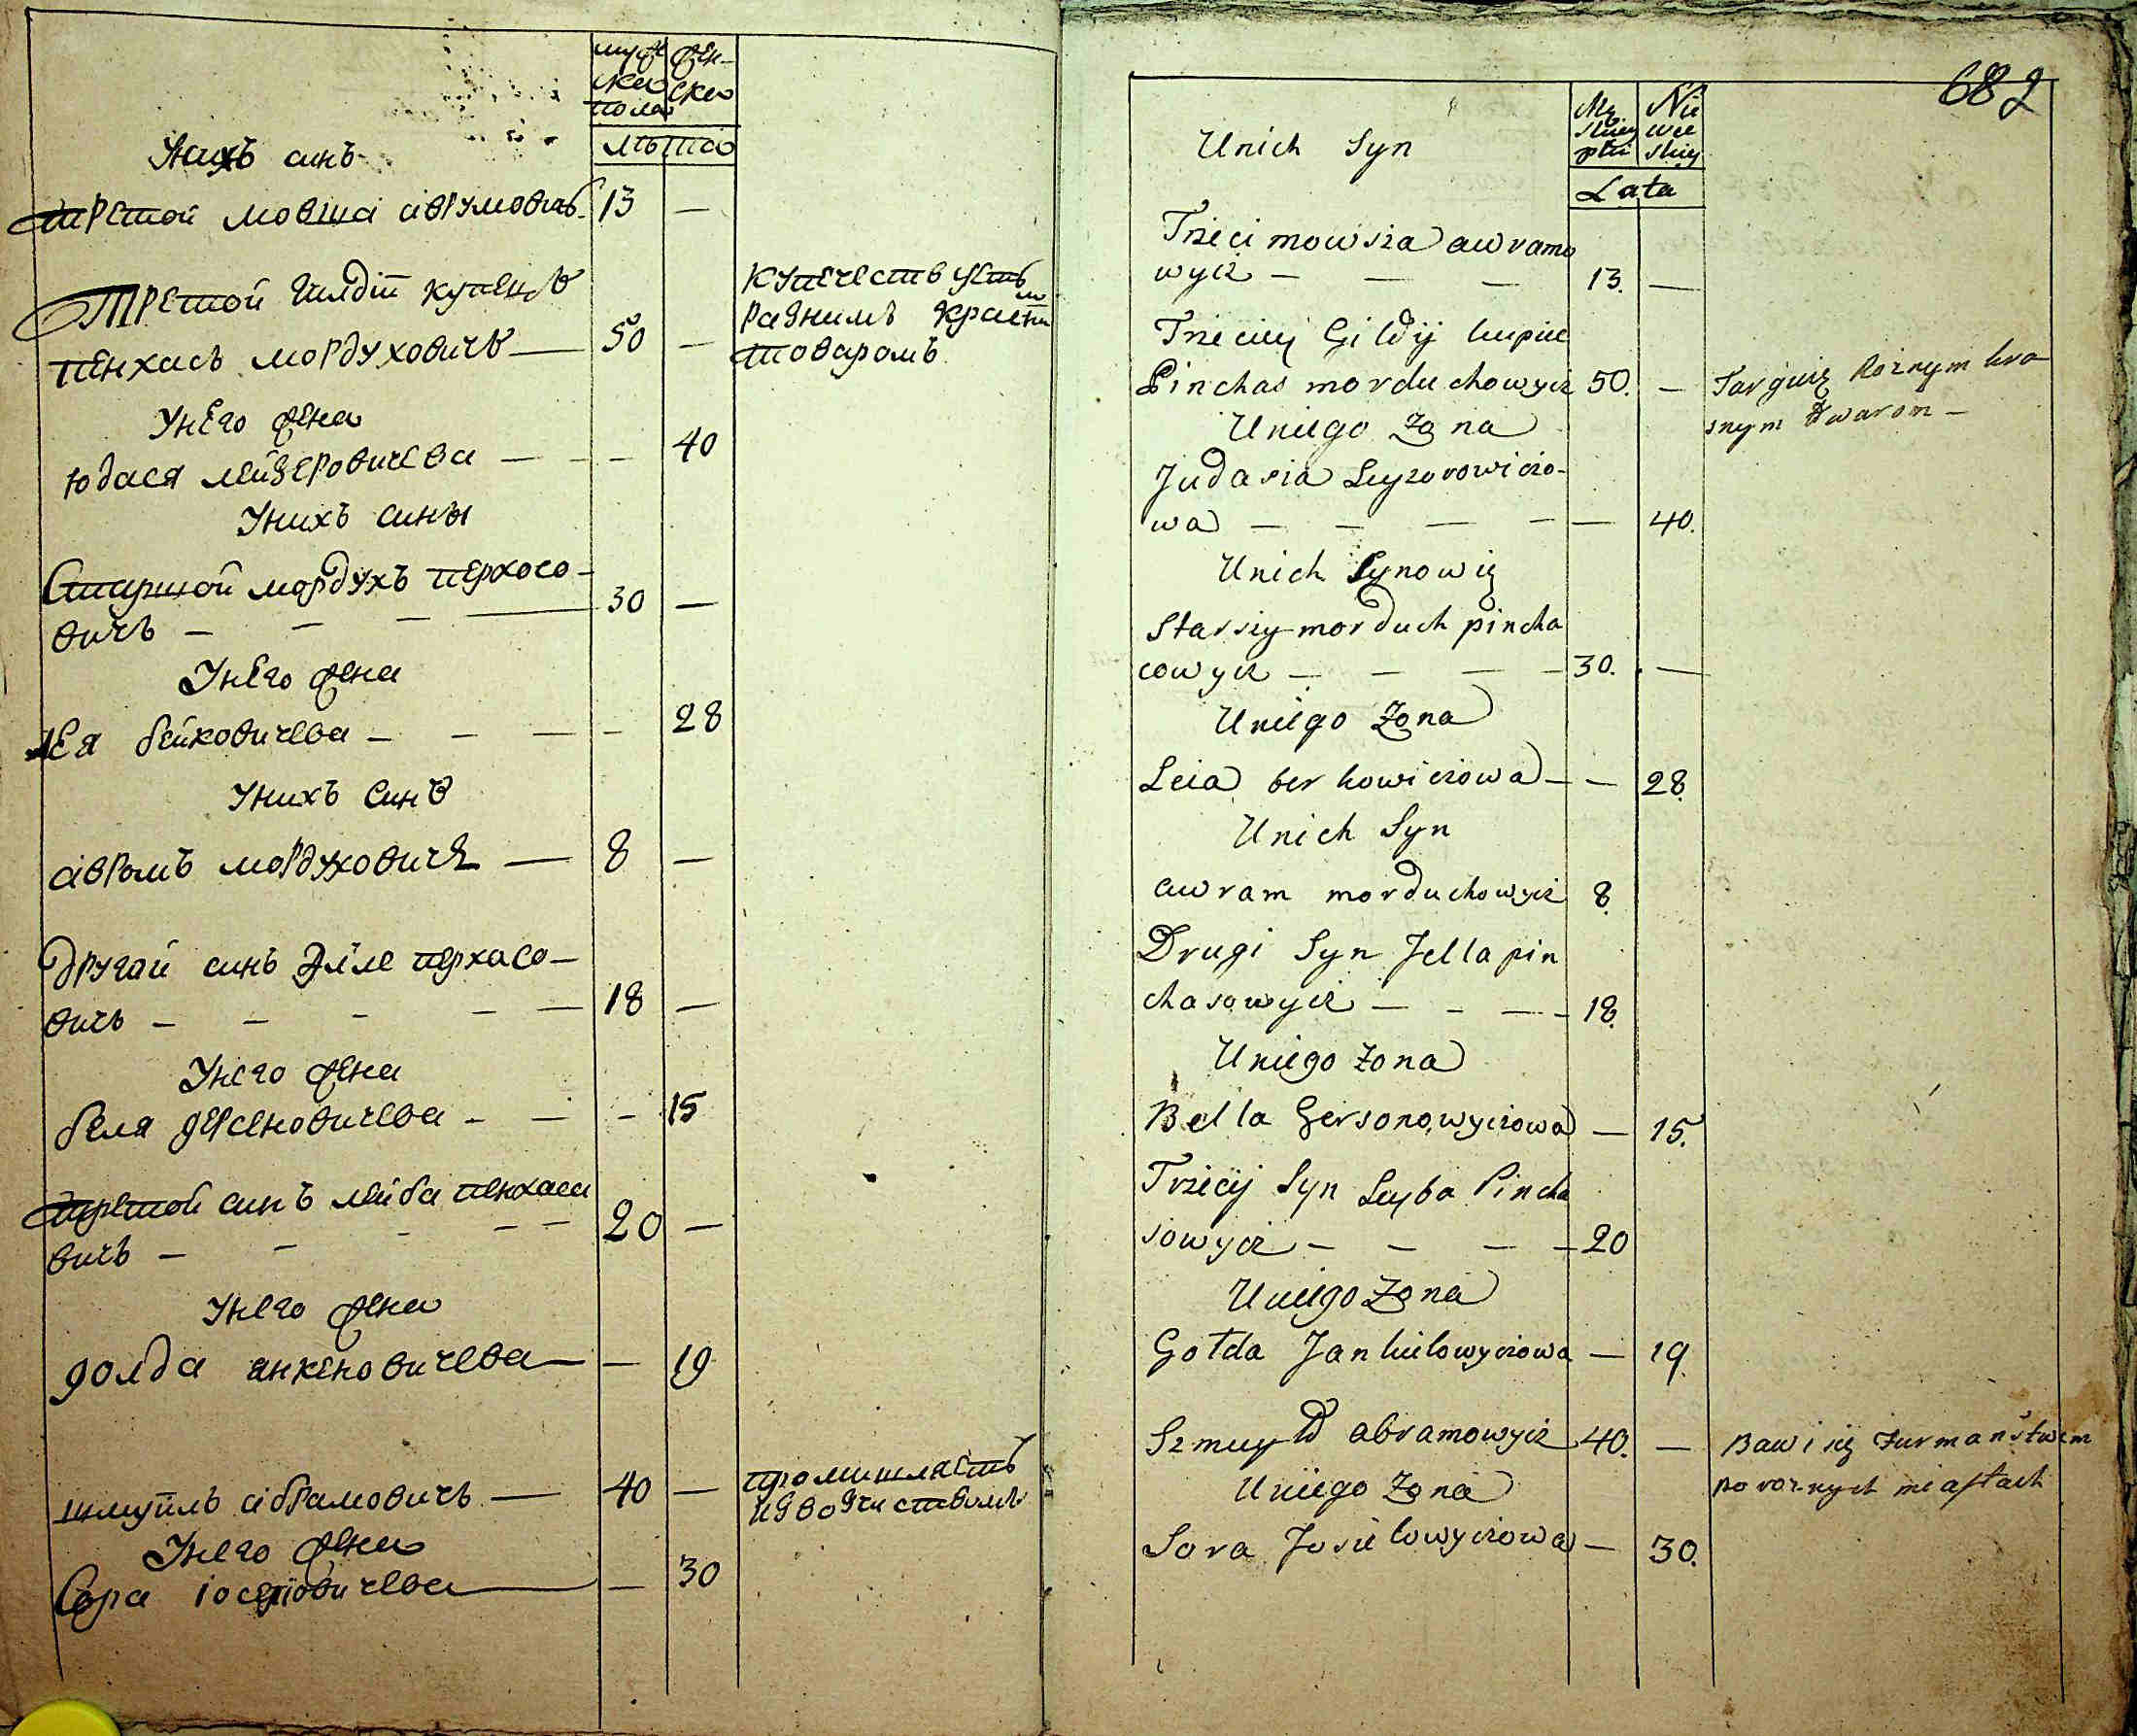 муже жен-
ска ска
пола
лѣта
Унихъ синъ
третой мовша аврумовичъ 13 —
Третой гилдіи купецъ
пенхасъ мордуховичъ — 50 —
купечествуетъ
разнимъ красни
товаромъ
Унего жена
юдася лейзеровичева — — 40
Унихъ сины
Старшой мордухъ пенхосо-
вичъ — — — 30 —
Унего жена
лея берковичева — — — — 28
Унихъ синъ
аврамъ мордуховичъ — 8 —
другой синъ Элле пенхасо-
вичъ — — — — — 18 —
Унего жена
беля герсеновичева — — — 15
третой синъ лейба пенхаси
вичъ — — — — — 20 —
Унего жена
голда анкеловичева — — 19
шмуйль абрамовичъ — 40 —
промишляетъ
извозчиствомъ
Унего жена
Сора іосеповичева — — 30
682
Męz Nie
skiey wie
płci skiey
Lata
Unich Syn
Trzeci mowsza awramo
wycz — — — 13. —
Trzeciey Gildij kupiec
Pinchas morduchowycz 50. — Targuię Roznym kra
snym twarom —
Uniego Zona
Judasia Leyzorowiczo-
wa — — — — — 40.
Unich Synowię
Starszy morduch pincha
sowycz — — — — 30. —
Uniego Zona
Leia berkowiczowa — — 28.
Unich Syn
awram morduchowycz 8.
Drugi Syn Jella pin
chasowycz — — — — 18.
Uniego zona
Bella Gersonowyczowa — 15.
Trzecij Syn Leyba Pincha
sowycz — — — — 20
Uniego Zona
Gołda Jankielowyczowa — 19.
Szmuyld abramowycz 40. — Bawi się Furmaństwem
po roznych miastach
Uniego Zona
Sora Josielowyczowa — 30.